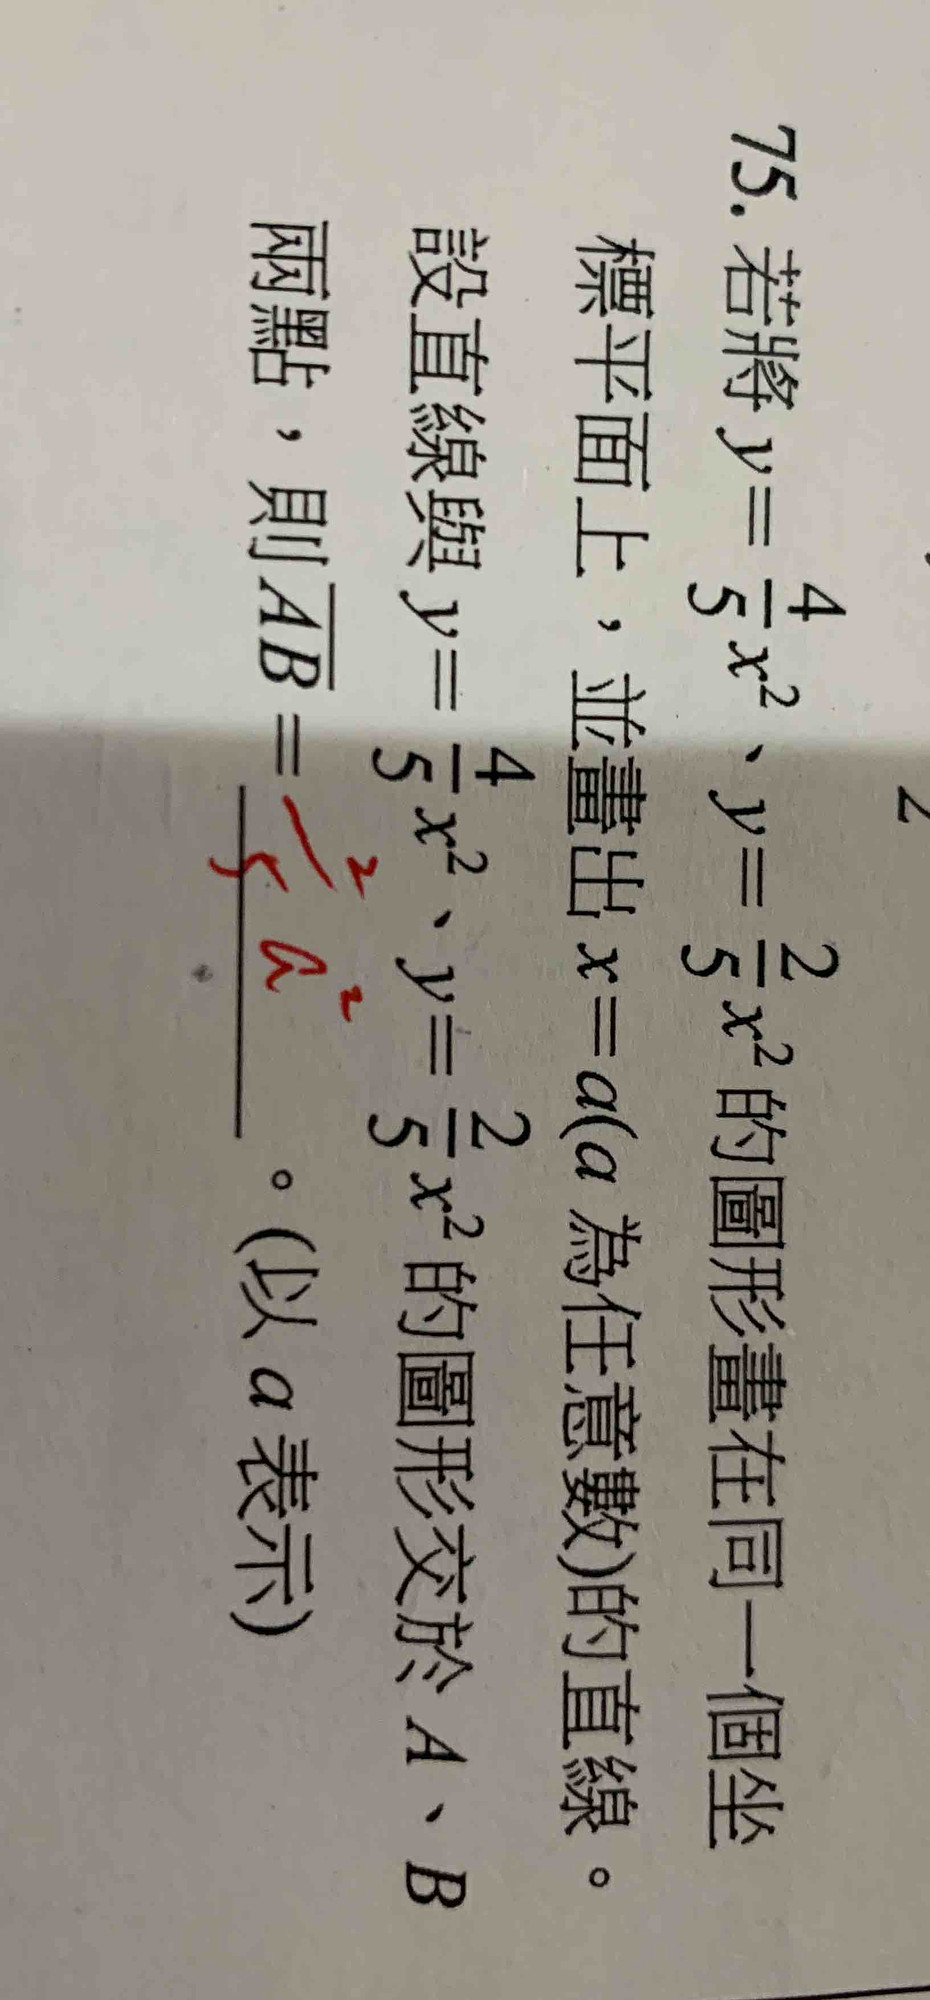 75. 若將 y=4/5x²、y=2/5x²的圖形畫在同一個坐
標平面上，並畫出 x=a(a 為任意數)的直線。
設直線與 y=4/5x²、y=2/5x²的圖形交於 A、B
兩點，則AB=2/5 a²。(以 a 表示)